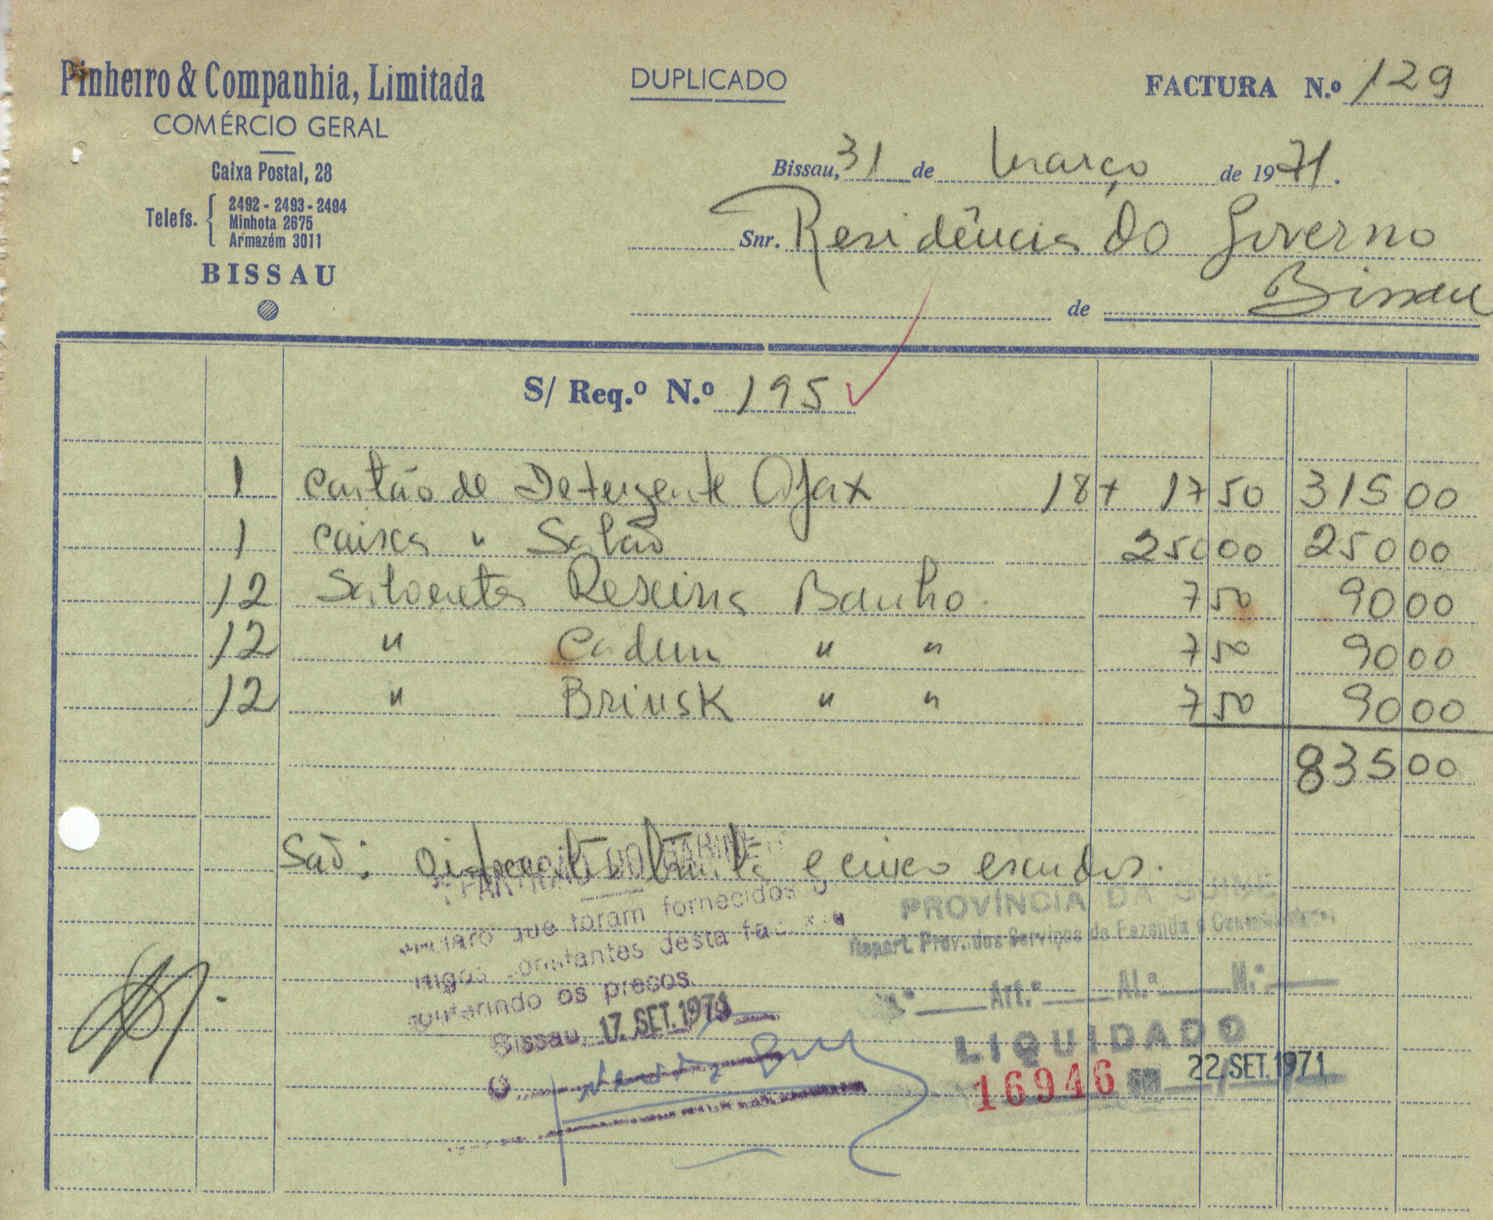 Pinheiro & Companhia, Limitada
COMÉRCIO GERAL
Caixa Postal, 28
Telefs. 2492 - 2493 - 2494
Minhota 2675
Armazém 3011
BISSAU
DUPLICADO
FACTURA N.º 129
Bissau, 31 de Março de 1971.
Snr. Residência do Governo
de Bissau
S/ Req.º N.º 195
1 Cartão de Detergente Ajax 18 x 17 50 315 00
1 Caixa " Sabão 250 00 250 00
12 Sabonetes Rexina Banho 7 50 90 00
12 " Cadum " " 7 50 90 00
12 " Brinsk " " 7 50 90 00
835 00
São: Oitocentos trinta e cinco escudos.
que foram fornecidos
constantes desta
os preços
Bissau, 17. SET. 1971
O
PROVÍNCIA DA GUINÉ
Repart. Prov. dos Serviços de Fazenda e
Art.º Al.ª N.º
LIQUIDADO
16946 EM 22 SET. 1971